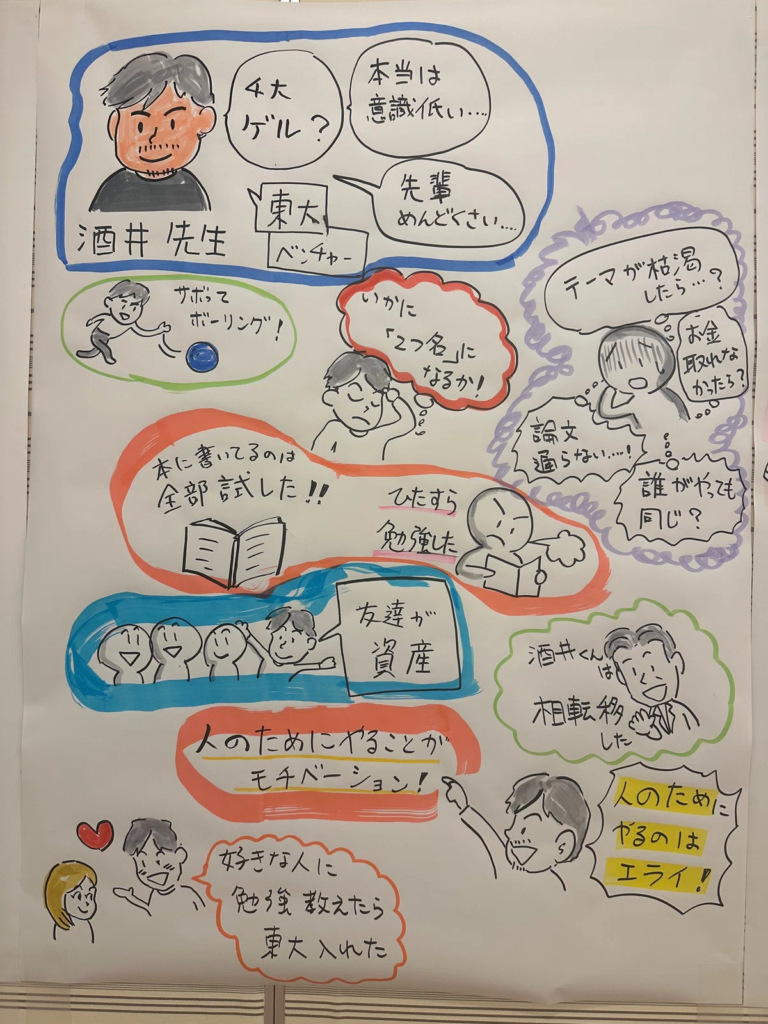 4大
ゲル?
本当は
意識低い….
先輩
めんどくさい….
東大
ベンチャー
酒井先生
サボって
ボーリング!
いかに
「2つ名」に
なるか!
テーマが枯渇
したら…?
お金
取れな
かったら?
論文
通らない….!
誰がやっても
同じ?
本に書いてるのは
全部試した!!
ひたすら
勉強した
友達が
資産
酒井くん
は
相転移
した
人のためにやることが
モチベーション!
人のために
やるのは
エライ!
好きな人に
勉強教えたら
東大入れた